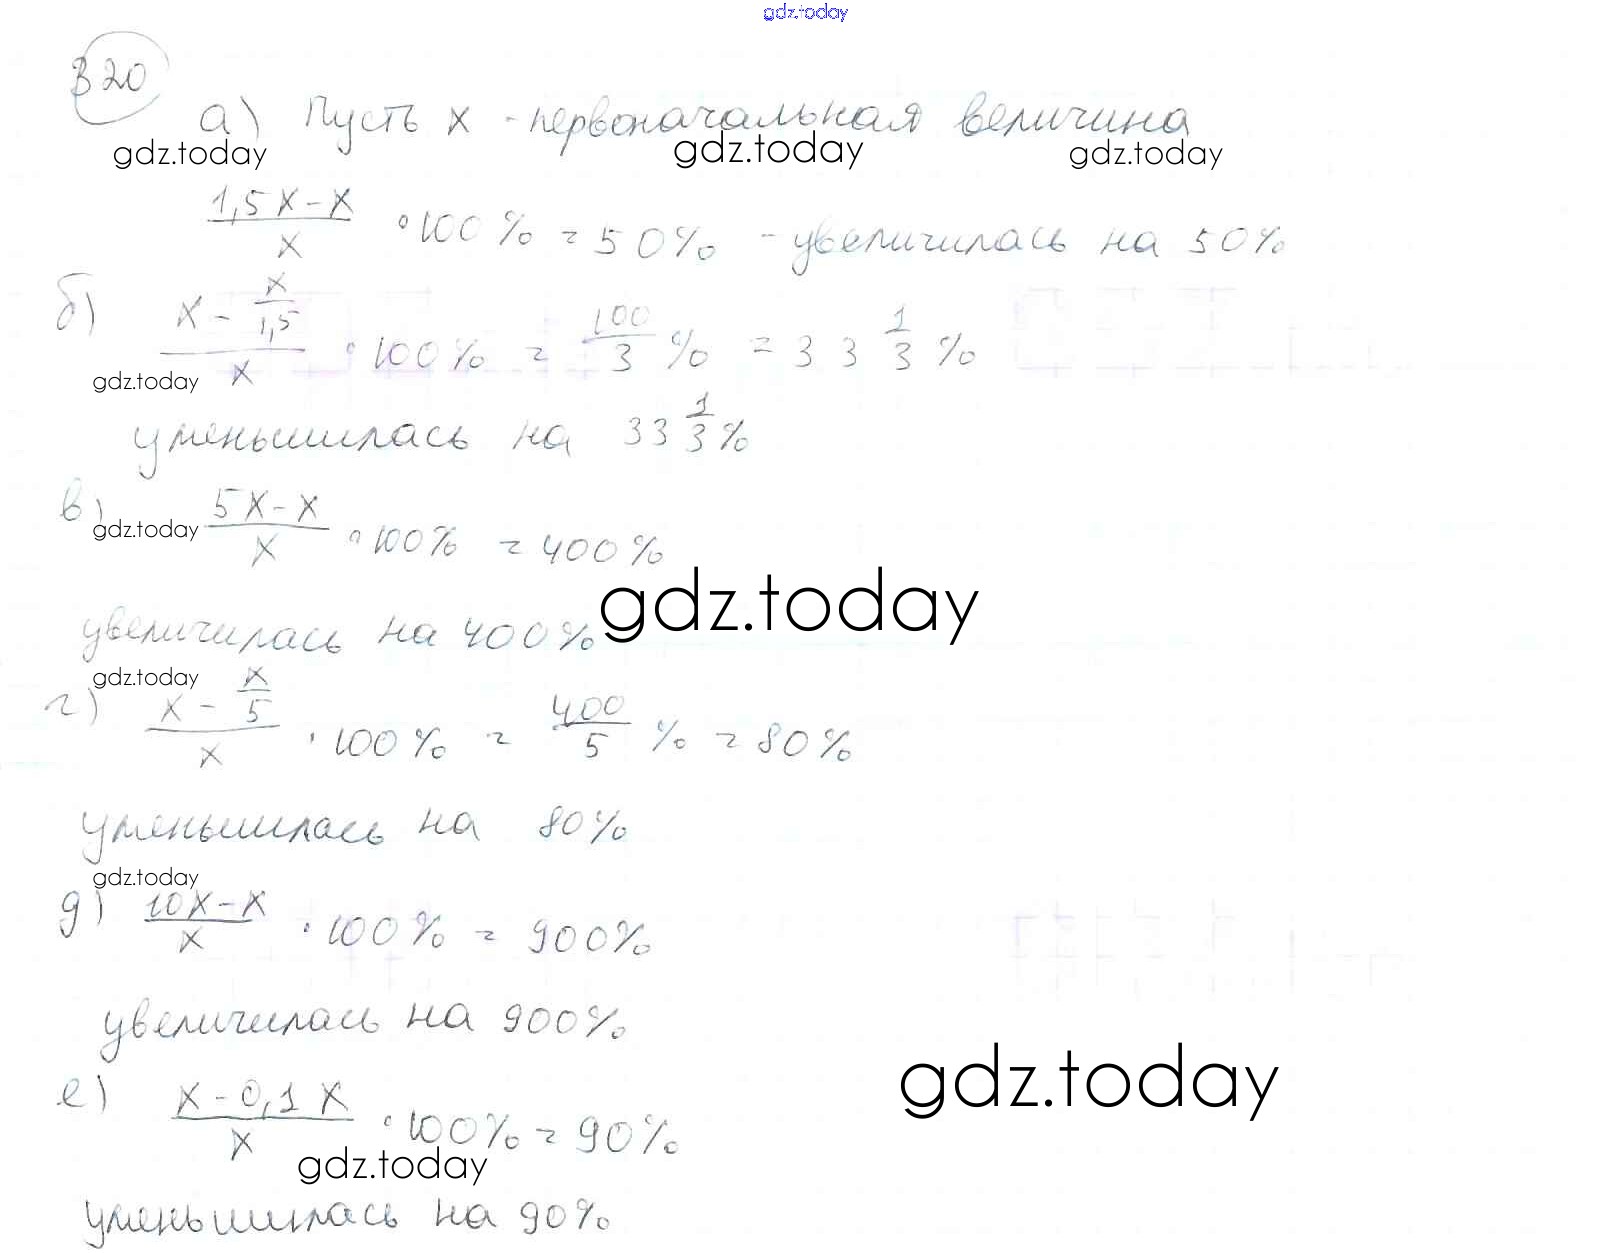 gdz.today
320
а) Пусть x - первоначальная величина
gdz.today gdz.today gdz.today
(1,5x-x)/x · 100% = 50% - увеличилась на 50%
б) (x - x/1,5)/x · 100% = 100/3 % = 33 1/3 %
gdz.today
уменьшилась на 33 1/3 %
в) (5x-x)/x · 100% = 400%
gdz.today
gdz.today
увеличилась на 400%
gdz.today
г) (x - x/5)/x · 100% = 400/5 % = 80%
уменьшилась на 80%
gdz.today
д) (10x-x)/x · 100% = 900%
увеличилась на 900%
gdz.today
е) (x-0,1x)/x · 100% = 90%
gdz.today
уменьшилась на 90%